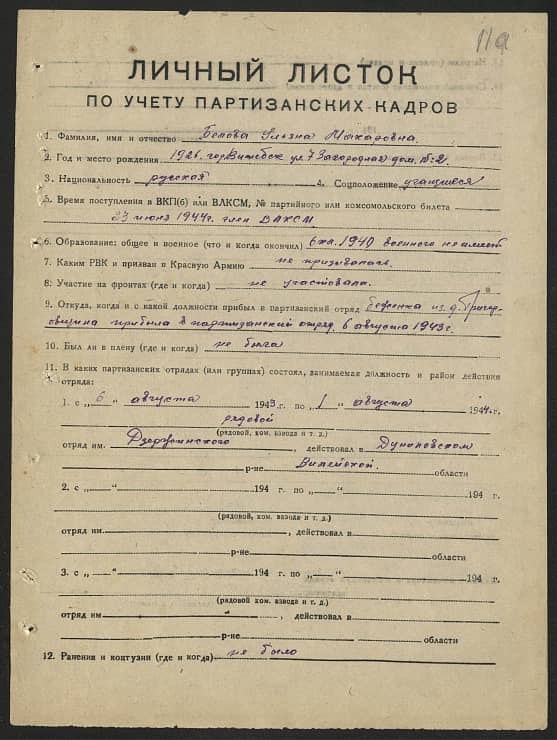 11а
ЛИЧНЫЙ ЛИСТОК
ПО УЧЕТУ ПАРТИЗАНСКИХ КАДРОВ
1. Фамилия, имя и отчество Белова Макаровна
2. Год и место рождения 1926. гор Витебск ул 7 Загородная дом. № 2.
3. Национальность русская 4. Соцположение учащиеся
5. Время поступления в ВКП(б) или ВЛКСМ, № партийного или комсомольского билета
23 июня 1944 г. член ВЛКСМ
6. Образование: общее и военное (что и когда окончил) 6 кл. 1940 военного не имеет
7. Каким РВК и призван в Красную Армию не призывалась.
8. Участие на фронтах (где и когда) не участвовала.
9. Откуда, когда и с какой должности прибыл в партизанский отряд беженка из д.
прибыла в партизанский отряд. 6 августа 1943 г.
10. Был ли в плену (где и когда) не была
11. В каких партизанских отрядах (или группах) состоял, занимаемая должность и район действия
отряда:
1. с „ 6 “ августа 1943 г. по „ 1 “ августа 1944 г.
рядовой
(рядовой, ком. взвода и т. д.)
отряд им. Дзержинского, действовал в
р-не Вилейской области
2. с „ “ 194 г. по „ “ 194 г.
(рядовой, ком. взвода и т. д.)
отряд им. , действовал в
р-не области
3. с „ “ 194 г. по „ “ 194 г.
(рядовой, ком. взвода и т. д.)
отряд им , действовал в
р-не области
12. Ранения и контузии (где и когда) не было